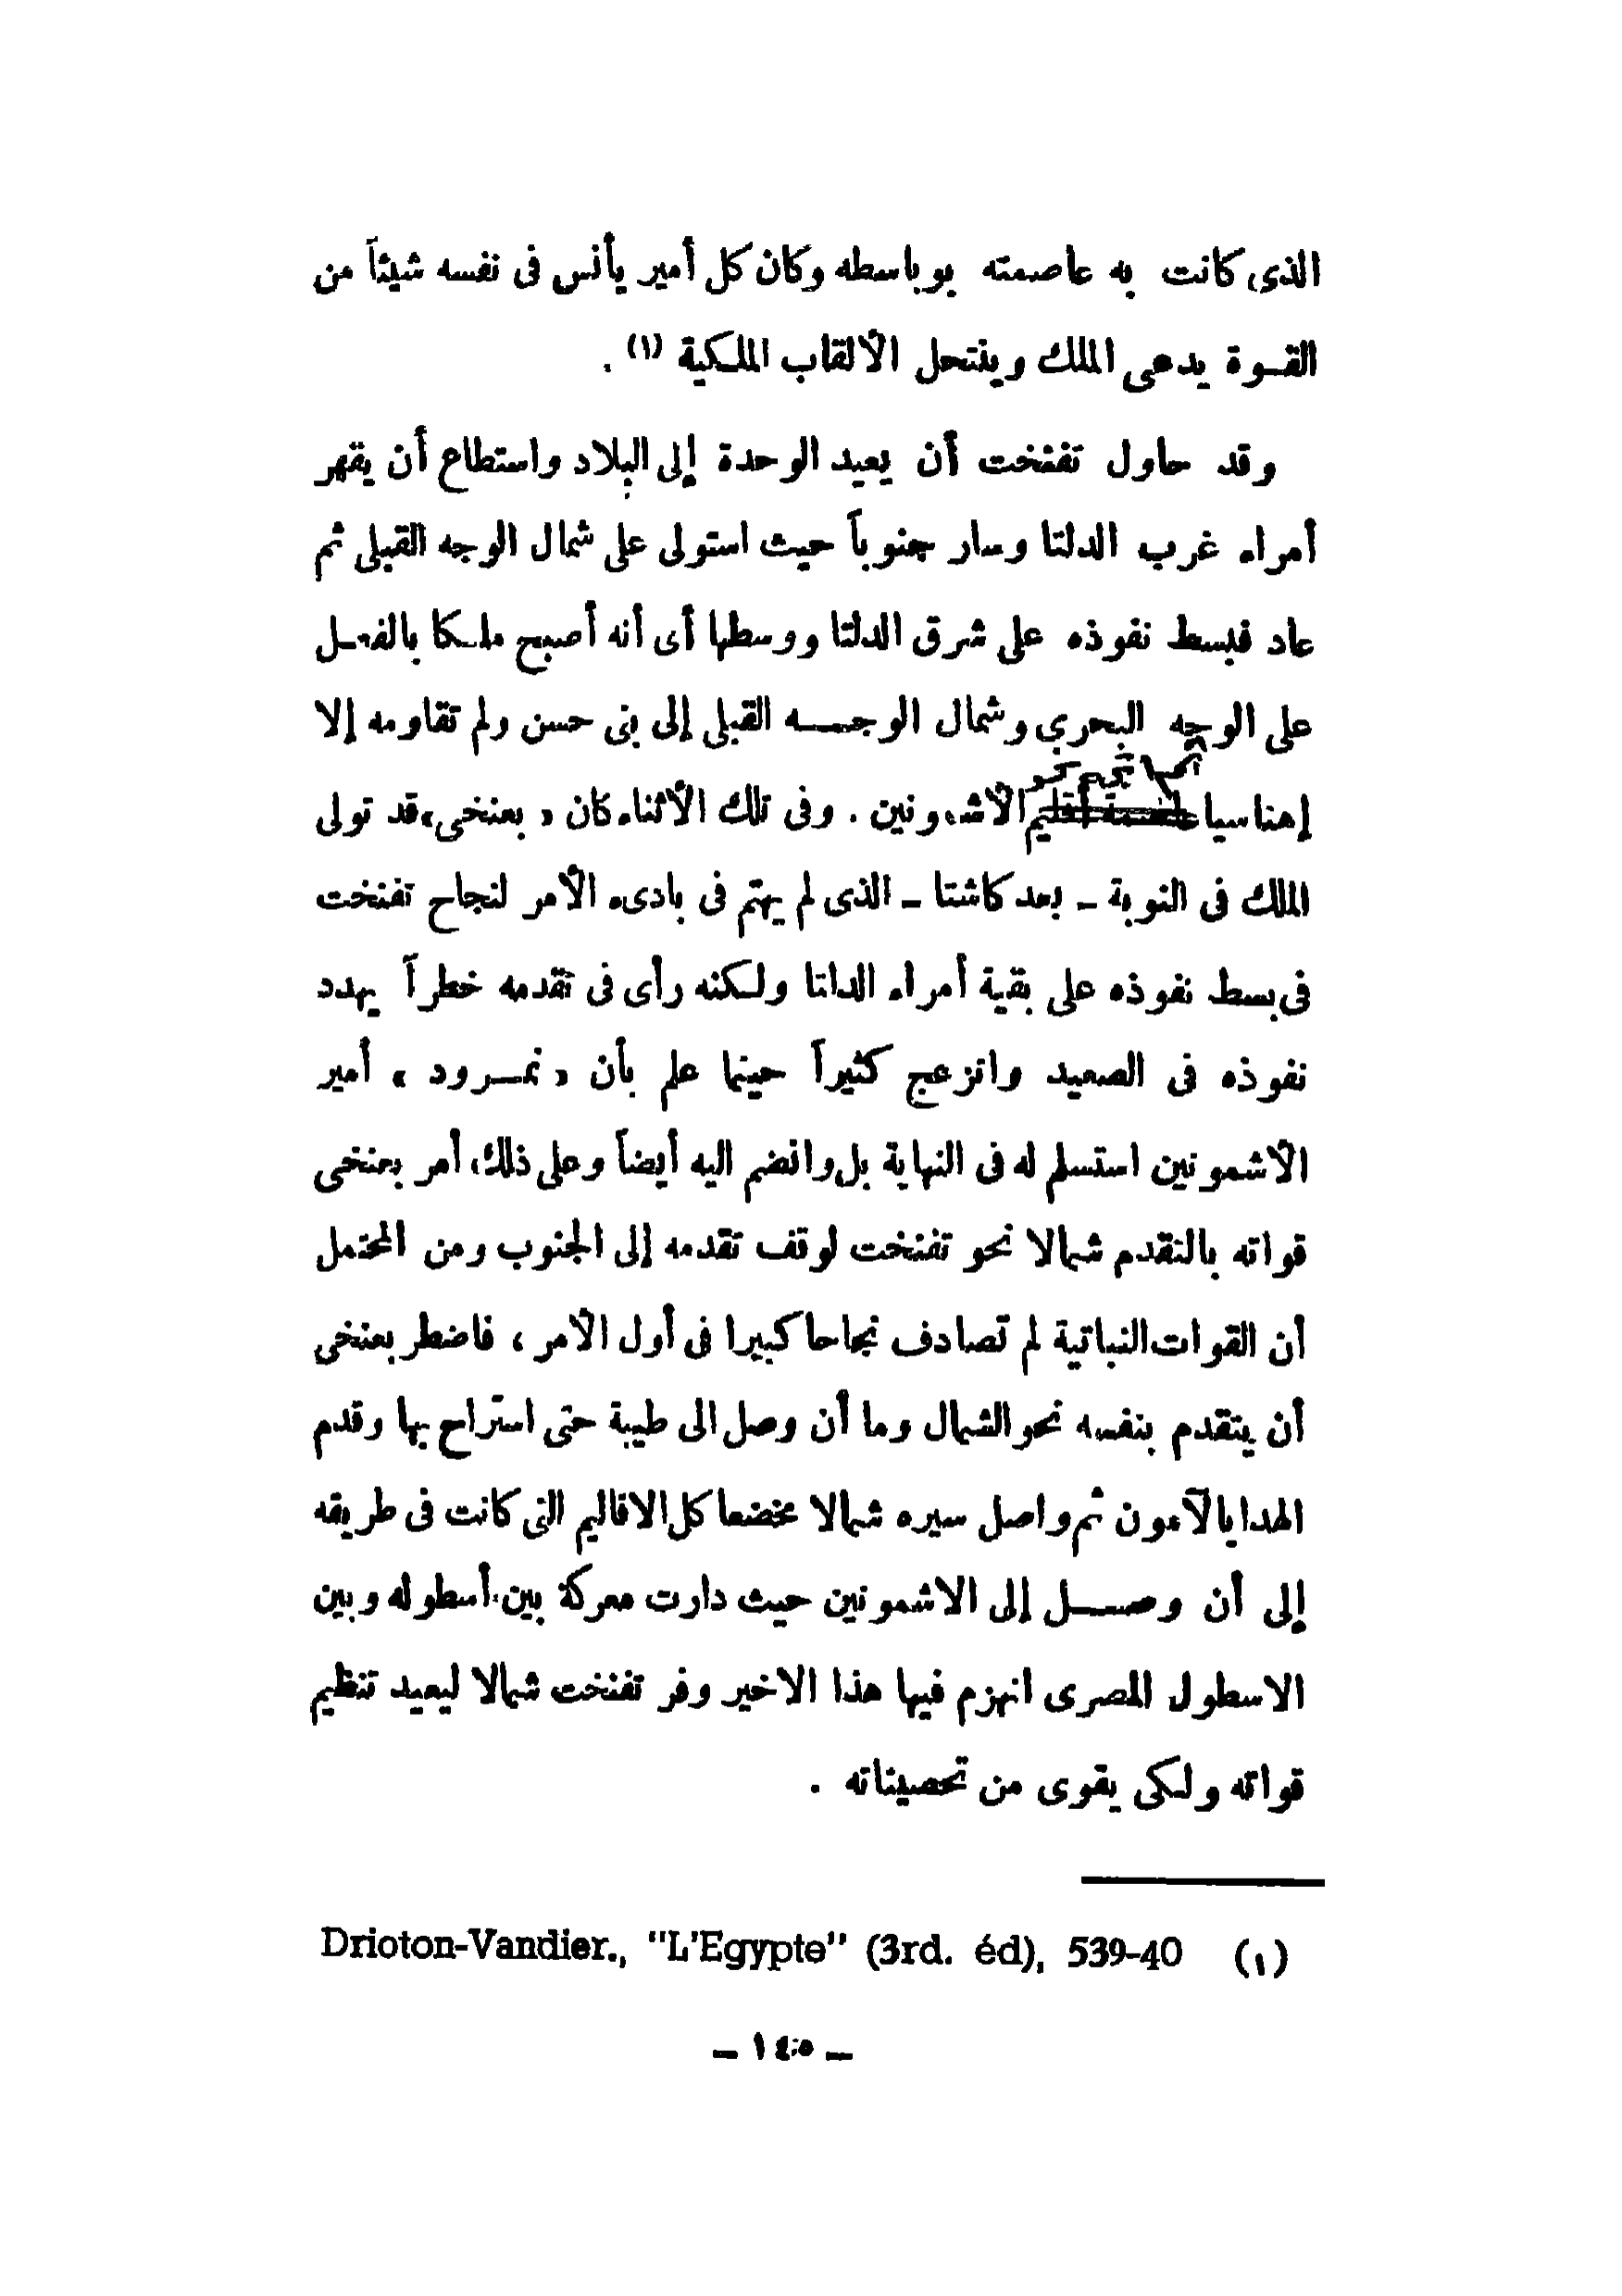 الذى كانت به عاصمته بوباسطه وكان كل أمير يأنس فى نفسه شيئاً من
القـوة يدعى الملك وينتحل الألقاب الملكية (١) .
وقد حاول تفنخت أن يعيد الوحدة إلى البلاد واستطاع أن يقهر
أمراء غرب الدلتا وسار جنوباً حيث استولى على شمال الوجه القبلى ثم
عاد فبسط نفوذه على شرق الدلتا ووسطها أى أنه أصبح ملكا بالفعـل
على الوجه البحرى وشمال الوجـــه القبلى إلى بنى حسن ولم تقاومه إلا
إهناسيا عاصمة أقليم الأشمونين . وفى تلك الأثناء كان « بعنخى » قد تولى
الملك فى النوبة – بعد كاشتا – الذى لم يهتم فى بادىء الأمر لنجاح تفنخت
فى بسط نفوذه على بقية أمراء الدلتا ولكنه رأى فى تقدمه خطراً يهدد
نفوذه فى الصعيد وانزعج كثيراً حينما علم بأن « نمـرود » أمير
الأشمونين استسلم له فى النهاية بل وانضم اليه أيضاً وعلى ذلك أمر بعنخى
قواته بالتقدم شمالا نحو تفنخت لوقف تقدمه إلى الجنوب ومن المحتمل
أن القوات النباتية لم تصادف نجاحا كبيرا فى أول الأمر ، فاضطر بعنخى
أن يتقدم بنفسه نحو الشمال وما أن وصل الى طيبة حتى استراح بها وقدم
الهدايا لآمون ثم واصل سيره شمالا مخضعا كل الاقاليم التى كانت فى طريقه
إلى أن وصـــل إلى الاشمونين حيث دارت معركة بين أسطوله وبين
الاسطول المصرى انهزم فيها هذا الاخير وفر تفنخت شمالا ليعيد تنظيم
قواته ولكى يقوى من تحصيناته .
(١) Drioton-Vandier., "L'Egypte" (3rd. éd), 539-40
– ١٤٥ –